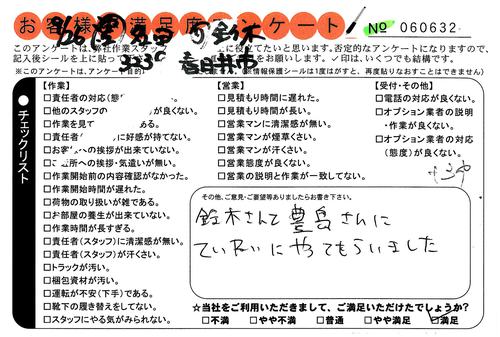 お客様満足度アンケート! № 060632
966 豊島 鈴木
323○ 春日井市
このアンケートは、弊社作業スタッフ に役立てたいと思います。否定的なアンケートになりますので、
記入後シールを上に貼って お願いします。✓印は、いくつでも結構です。
(※このアンケートは、アンケート目的 ※情報保護シールは1度はがすと、再度貼りなおすことはできません)
チェックリスト
【作業】
□責任者の対応(態 が良くない。
□他のスタッフの が良くない。
□作業を見て ある。
□責任者 に好感が持てない。
□お客 への挨拶が出来ていない。
□ご近所への挨拶・気遣いが無い。
□作業開始前の内容確認がなかった。
□作業開始時間が遅れた。
□荷物の取り扱いが雑である。
□お部屋の養生が出来ていない。
□作業時間が長すぎる。
□責任者(スタッフ)に清潔感が無い。
□責任者(スタッフ)が汗くさい。
□トラックが汚い。
□梱包資材が汚い。
□運転が不安(下手)である。
□靴下の履き替えをしてない。
□スタッフにやる気がみられない。
【営業】
□見積もり時間に遅れた。
□見積もり時間が長い。
□営業マンに清潔感が無い。
□営業マンが煙草くさい。
□営業マンが汗くさい。
□営業態度が良くない。
□営業の説明と作業が一致してない。
【受付・その他】
□電話の対応が良くない。
□オプション業者の説明
・作業が良くない。
□オプション業者の対応
(態度)が良くない。
その他、ご意見・ご要望等ありましたらお書き下さい。
鈴木さんと豊島さんに
ていねいにやってもらいました
☆当社をご利用いただきまして、ご満足いただけたでしょうか?
□不満 □やや不満 □普通 □やや満足 ☑満足